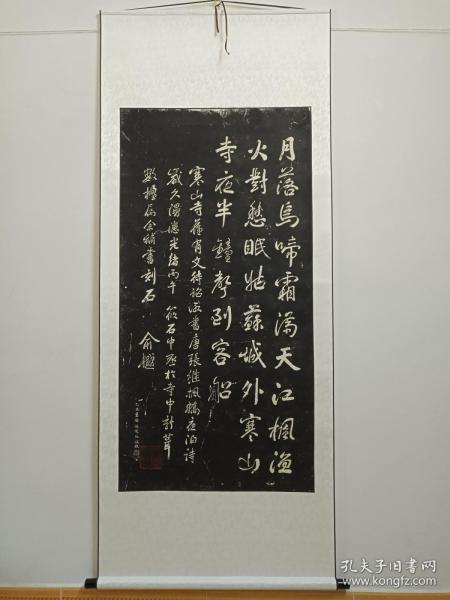 月落烏啼霜满天江楓漁
火對愁眠姑蘇城外寒山
寺夜半鐘聲到客船
寒山寺舊有文待詔所書唐張繼楓橋夜泊詩
歲久漫漶光緒丙午筱石中丞於寺中新葺
數楹属余補書刻石
俞樾
孔夫子旧书网
www.kongfz.com